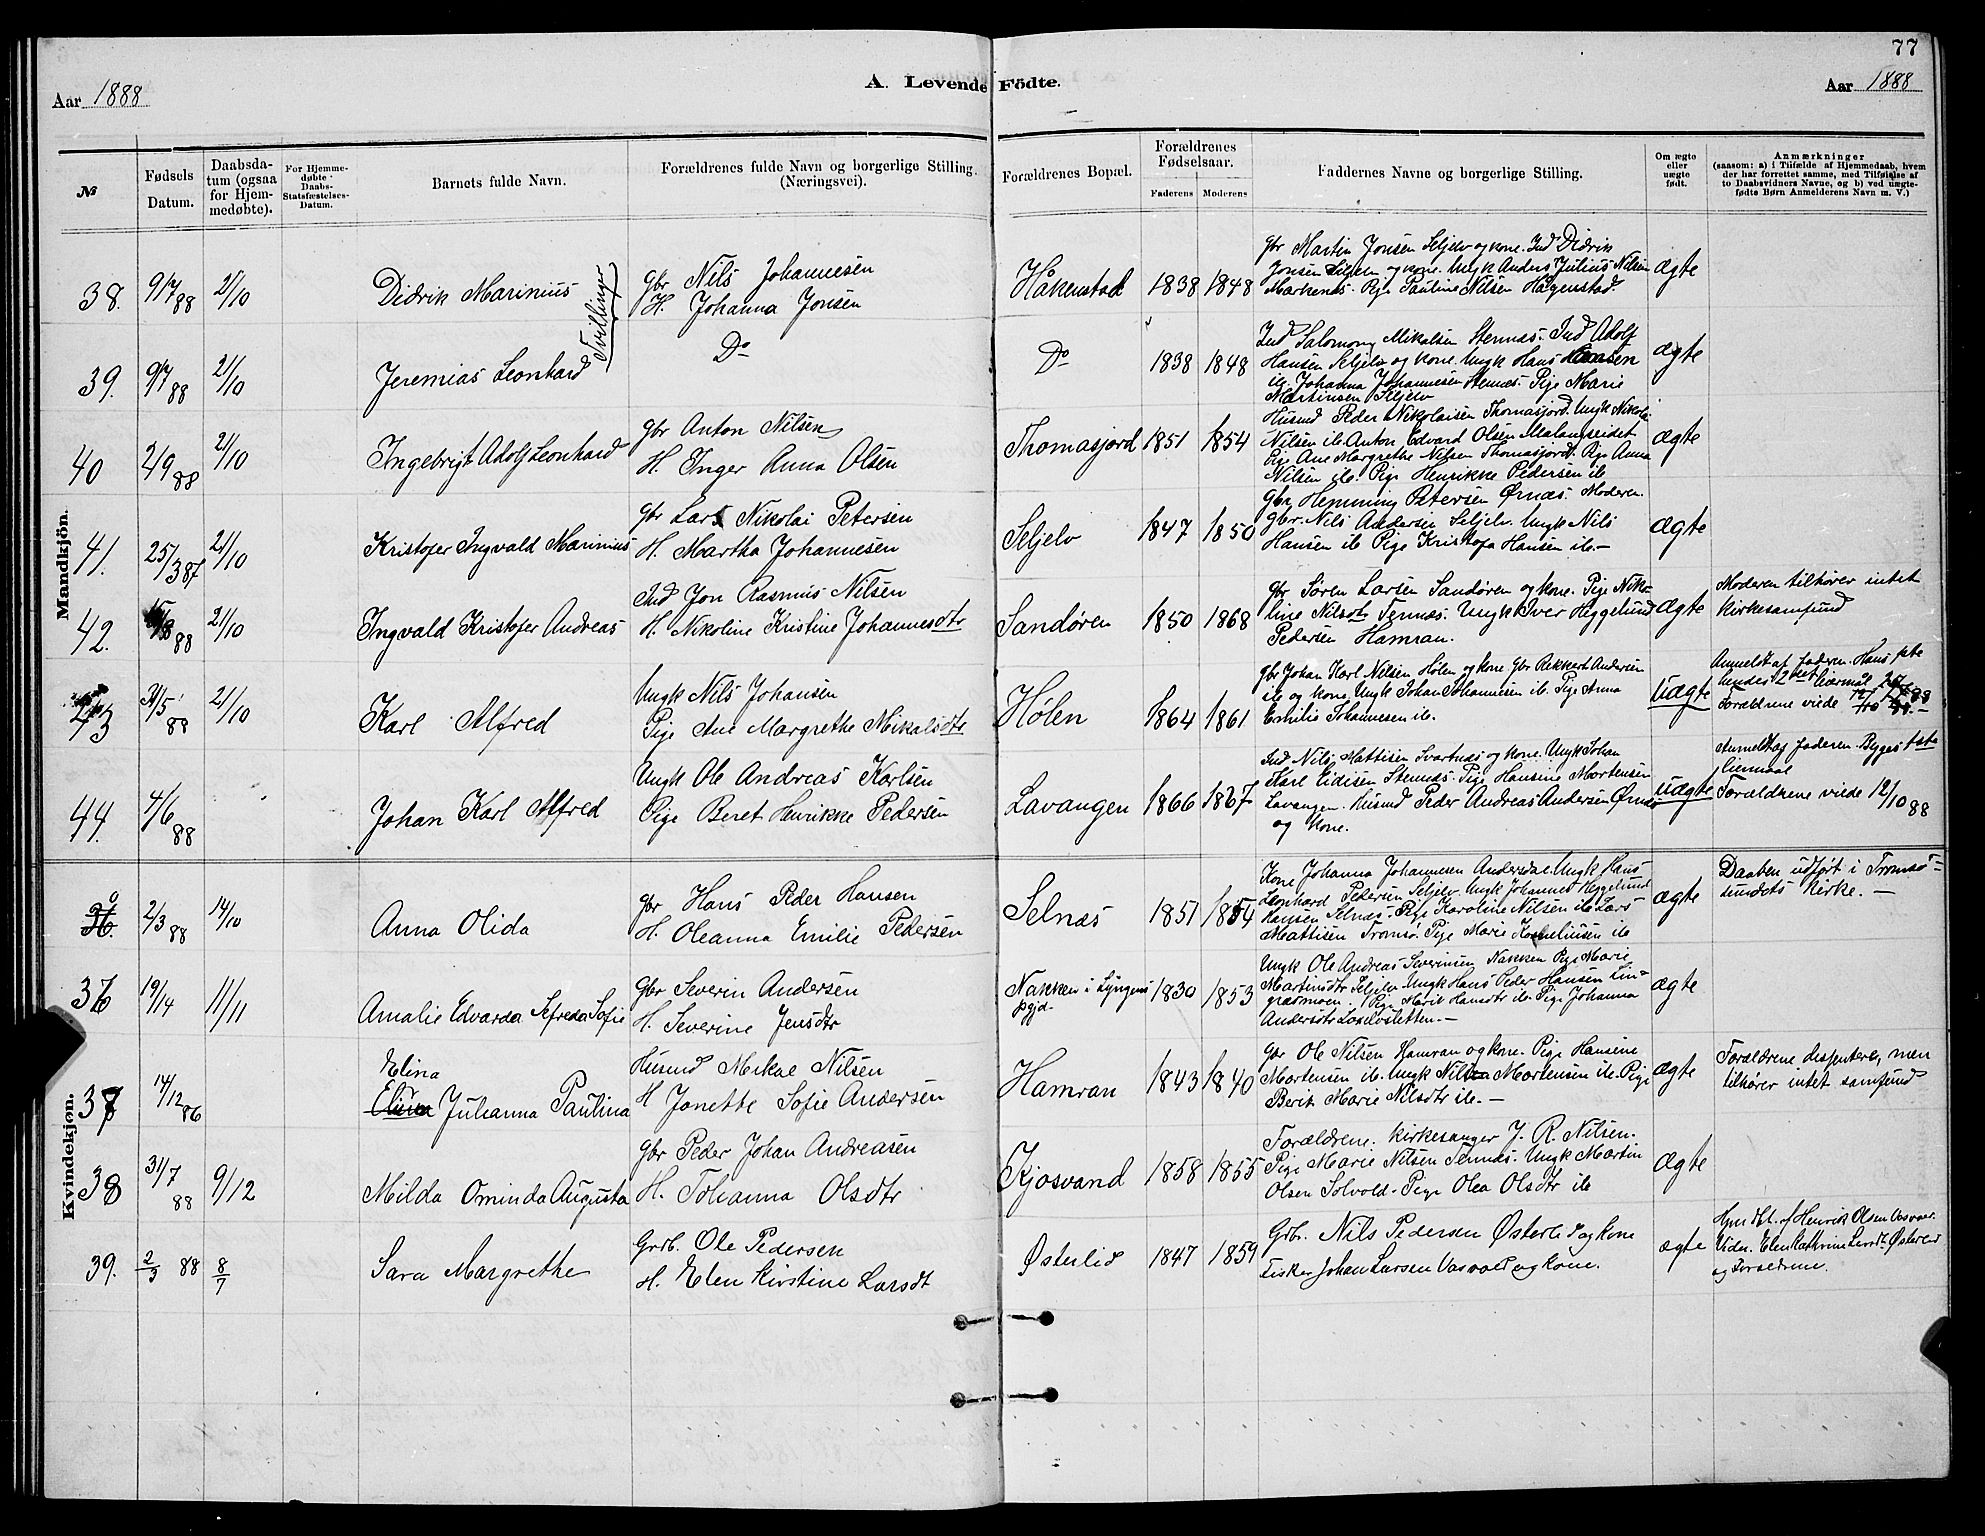 77
Aar 1888
A. Levende Födte.
Aar 1888
№
Fødsels Datum.
Daabsdatum (ogsaa for Hjemmedøbte).
For Hjemmedøbte Daabs-Statsfæstelses-Datum.
Barnets fulde Navn.
Forældrenes fulde Navn og borgerlige Stilling. (Næringsvei).
Forældrenes Bopæl.
Forældrenes Fødselsaar.
Faderens Moderens
Faddernes Navne og borgerlige Stilling.
Om ægte eller uægte født.
Anmærkninger
(saasom: a) i Tilfælde af Hjemmedaab, hvem
der har forrettet samme, med Tilføielse af
to Daabsvidners Navne, og b) ved uægte-
fødte Børn Anmelderens Navn m. V.)
Mandkjön.
38. 9/7 88 21/10 Didrik Marinius Tvillinger
Gbr Nils Johannesen
H. Johanna Jonsen
Håkenstad 1838 1848
Gbr Martin Jonsen Seljelv og kone. Ind Didrik
Jonsen og kone. Ungk Anders Julius Nilsen
Markenes. Pige Pauline Nilsen Hagenstad.
ægte
39. 9/7 88 21/10 Jeremias Leonhard
Do
Do 1838 1848
Ind Salomon Mikalsen Stennæs. Ind Adolf
Hansen Seljelv og kone. Ungk Hans Hansen
ib. Johanna Johannesen Stennæs. Pige Marie
Martinsen Seljelv
ægte
40 2/9 88 21/10 Ingebrigt Adolf Leonhard
Gbr Anton Nilsen
H. Inger Anna Olsen
Thomasjord 1851 1854
Husmd Peder Nikolaisen Thomasjord. Ungk Nikolai
Nilsen ib. Anton Edvard Olsen Malangseidet
Pige Ane Margrethe Nilsen Thomasjord. Pige Anna
Nilsen ib. Pige Henrikke Pedersen ib
ægte
41. 25/3 87 21/10 Kristofer Ingvald Marinius
Gbr Lars Nikolai Petersen
H. Martha Johannesen
Seljelv 1847 1850
Gbr Hemming Petersen Ørnæs. Moderen.
Gbr. Nils Andersen Seljelv. Ungk Nils
Hansen ib Pige Kristofa Hansen ib.—
ægte
42. 88 21/10 Ingvald Kristofer Andreas
Ind Jon Rasmus Nilsen
H. Nikoline Kristine Johannesdtr
Sandøren 1850 1868
Gbr Søren Larsen Sandøren og kone. Pige Niko-
line Nilsdtr Tennæs. Ungk Iver Heggelund
Pedersen Hamran.
ægte
Moderen tilhører intet
kirkesamfund
43 31/5 88 21/10 Karl Alfred
Ungk Nils Johansen
Pige Ane Margrethe Mikalsdtr
Hølen 1864 1861
Gbr Johan Karl Nilsen Hølen og kone Gbr Rekkert Andersen
ib og kone. Ungk Johan Johannesen ib. Pige Anna
Emilie Johannesen ib.
uægte
Anmeldt af Faderen. Hans 1ste
hendes 2det leiermål
Forældrene viede
44. 4/6 88 Johan Karl Alfred
Ungk Ole Andreas Karlsen
Pige Beret Henrikke Pedersen
Lavangen 1866 1867
Ind Nils Mattisen Svartnæs og kone. Ungk Johan
Karl Eidisen Stennæs. Pige Hansine Mortensen
Lavangen. Husmd Peder Andreas Andersen Ørnæs
og kone.
uægte
Anmeldt af Faderen. Begges 1ste
leiermaal
Forældrene viede 12/10 88
Kvindekjøn.
36. 2/3 88 14/10 Anna Olida
Gbr Hans Peder Hansen
H. Oleanna Emilie Pedersen
Selnæs 1851 1854
Kone Johanna Johannesen Andersdal Ungk Hans
Leonhard Pedersen Seljelv. Ungk Johannes Heggelund
Hansen Selnæs. Pige Karoline Nilsen ib. Lars
Mattisen Tromsø. Pige Marie Korneliusen ib
ægte
Daaben udført i Tromsø-
sundets kirke.—
36 19/14 11/11 Amalie Edvarda Sefreda Sofie
Gbr Severin Andersen
H. Severine Jensdtr
Nakken i Lyngens Pgjd. 1830 1853
Ungk Ole Andreas Severinsen Nakken Pige Marie
Martinsdtr Seljelv. Ungk Hans Peder Hansen Lin-
grasmoen. Pige Marit Hansdtr ib. Pige Johanna
Andersdtr Laxelvsletten.—
ægte
37 14/12 86 Elina Julianna Paulina
Husmd Mekal Nilsen
H Jonette Sofie Andersen
Hamran 1843 1840
Gbr Ole Nilsen Hamran og kone. Pige Hansine
Mortensen ib. Ungk Nils Mortensen ib. Pige
Berit Marie Nilsdtr ib.—
ægte
Forældrene dissentere, men
tilhører intet samfund
38 31/7 88 9/12 Milda Ominda Augusta
Gbr Peder Johan Andreasen
H. Johanna Olsdtr
Kjosvand 1858 1855
Forældrene. Kirkesanger J. R. Nilsen.
Pige Marie Nilsen Tennæs. Ungk Martin
Olsen Solvold. Pige Olea Olsdtr ib
ægte
39. 2/3 88 8/7 Sara Margrethe
Grdb. Ole Pedersen
H. Elen Kirstine Larsdt
Østerlid 1847 1859
Grbr. Nils Pedersen Østerlid og kone
Fisker Johan Larsen Vasvold og kone.
ægte
Hjm dbt. af Henrik Olsen Vasvold.
Vidn. Elen Kathrine Larsdt. Østerlid
og Forældrene.